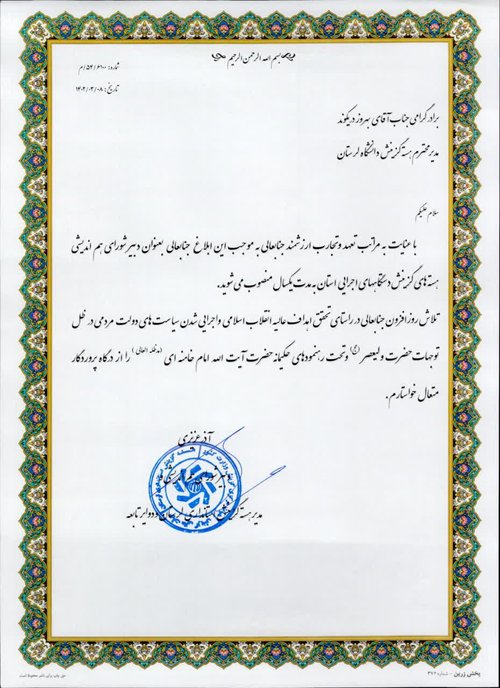 بسم الله الرحمن الرحیم
شماره: ۵۴/۶۱۰۰/م
تاریخ: ۱۴۰۲/۰۳/۰۸
برادر گرامی جناب آقای بهروز دیکوند
مدیر محترم هسته گزینش دانشگاه لرستان
سلام علیکم
با عنایت به مراتب تعهد و تجارب ارزشمند جنابعالی به موجب این ابلاغ جنابعالی بعنوان دبیر شورای هم اندیشی
هسته های گزینش دستگاههای اجرایی استان به مدت یکسال منصوب می شوید.
تلاش روز افزون جنابعالی در راستای تحقق اهداف عالیه انقلاب اسلامی و اجرایی شدن سیاست های دولت مردمی در ظل
توجهات حضرت ولیعصر (عج) و تحت رهنمودهای حکیمانه حضرت آیت الله امام خامنه ای (مدظله العالی) را از درگاه پروردگار
متعال خواستارم.
آذر عزیزی
مدیر هسته گزینش استانداری لرستان و دوایر تابعه
پخش زرین - شماره ۳۷۶
حق چاپ برای ناشر محفوظ است